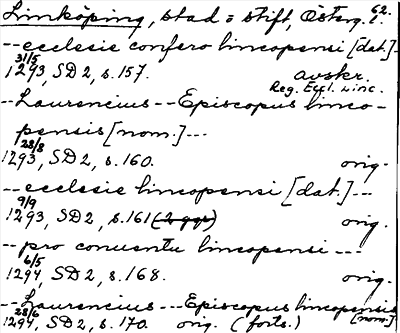 Linköping, stad o stift, Österg. l. 62.
--ecclesie confero lincopensi [dat.]--
31/5 1293, SD 2, s. 157. avskr.
Reg. Eccl. Linc.
--Laurencius--Episcopus linco-
pensis [nom.]---
28/8 1293, SD 2, s. 160. orig.
--ecclesie lincopensi [dat.]---
9/9 1293, SD 2, s. 161 (2 ggr) orig.
--pro conuentu lincopensi ---
6/5 1294, SD 2, s. 168. orig.
--Laurencius---Episcopus lincopensis [nom.]
28/6 1294, SD 2, s. 170. orig. (forts.)